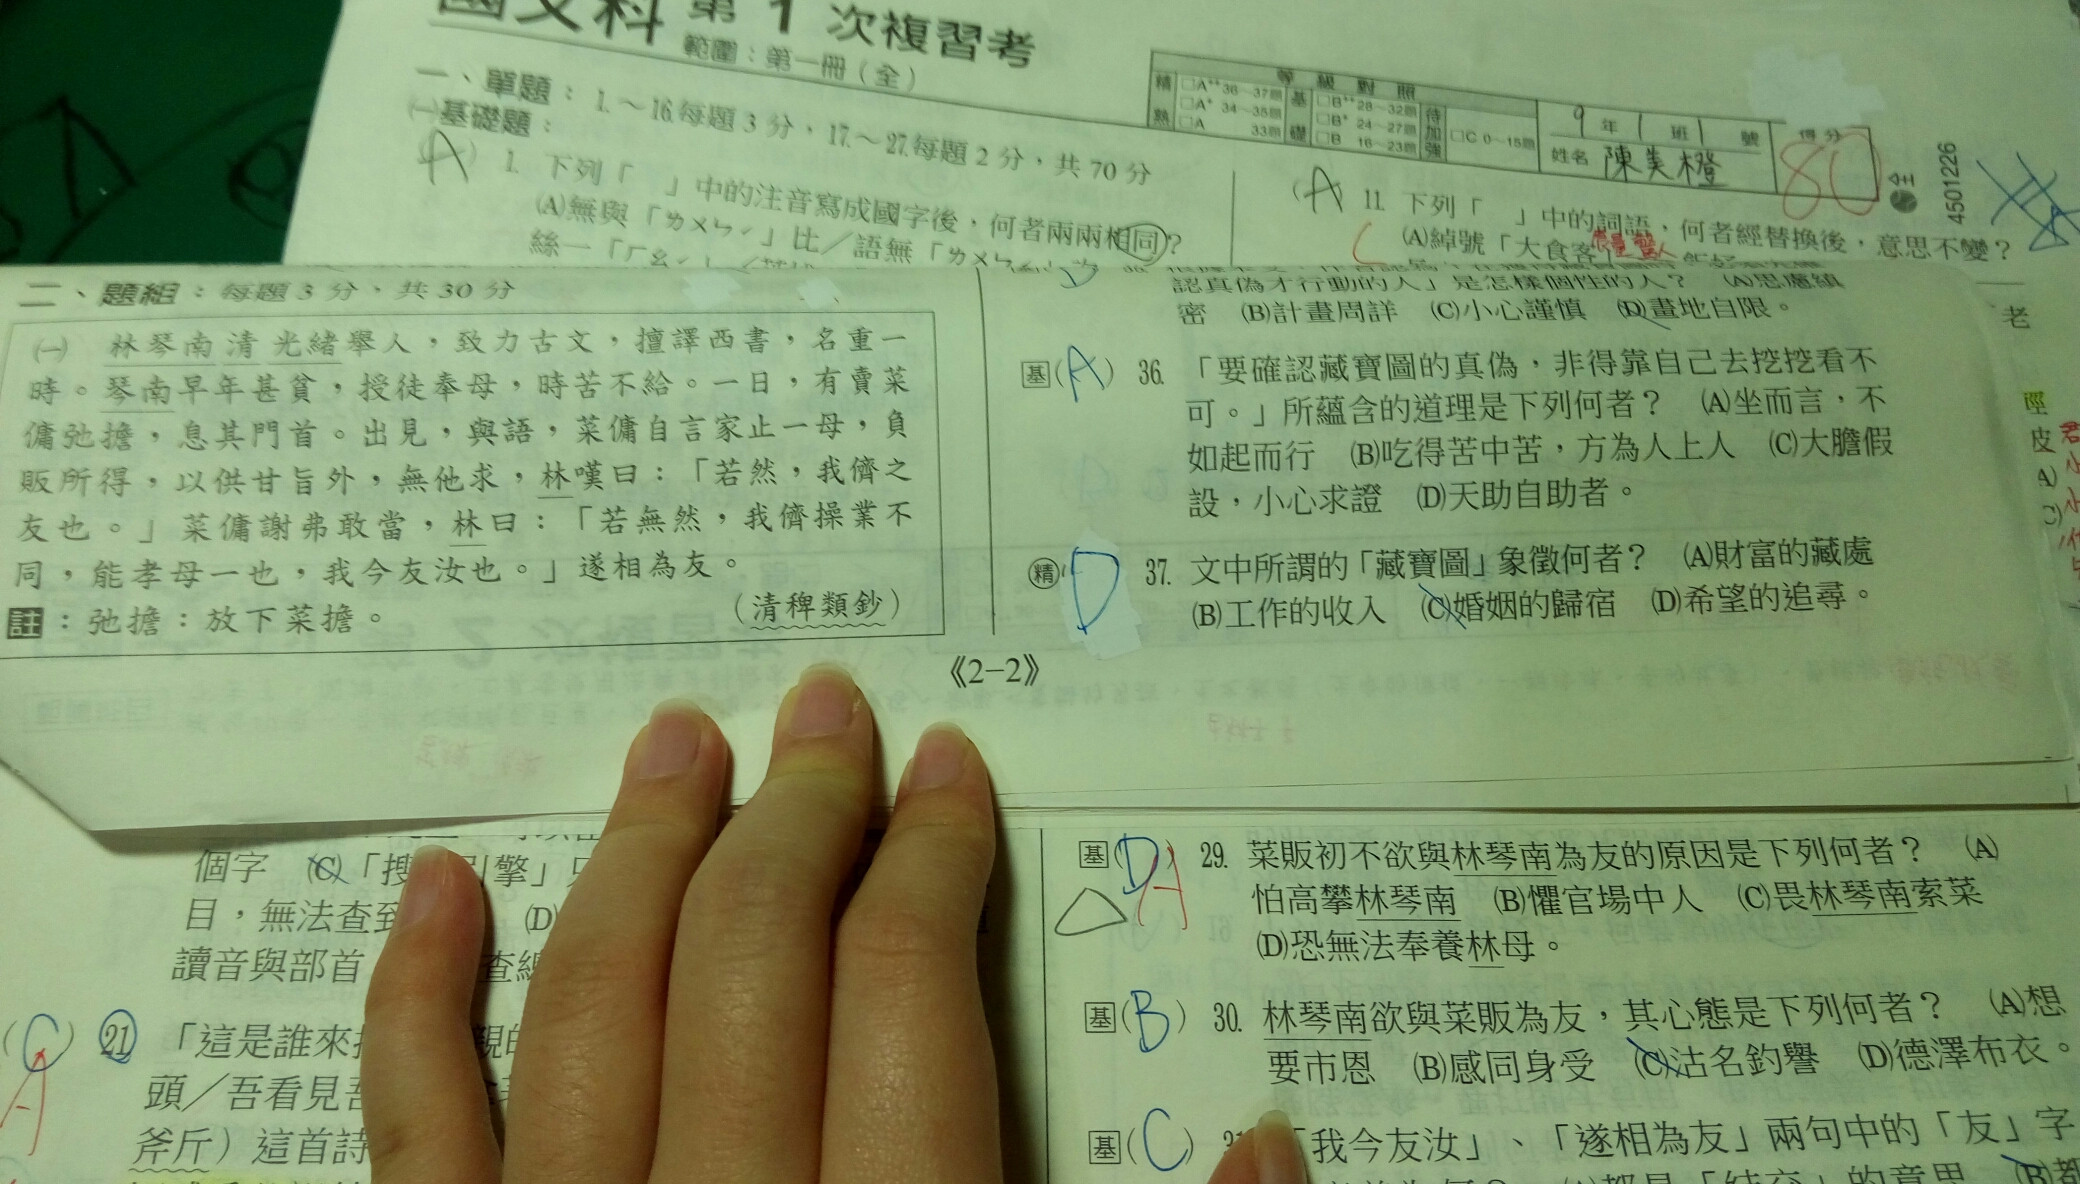 國文科 第1次複習考
範圍：第一冊（全）
一、單題：1.～16.每題3分，17.～27.每題2分，共70分
㈠基礎題：
(A) 1. 下列「 」中的注音寫成國字後，何者兩兩相同？
(A)無與「ㄌㄨㄣˊ」比／語無「ㄌㄨㄣˊ」次
絲一「ㄏㄠˊ」
等級對照
精熟 □A⁺⁺36～37題
□A⁺ 34～35題
□A 33題
基礎 □B⁺⁺28～32題
□B⁺ 24～27題
□B 16～23題
待加強 □C 0～15題
9年1班1號
姓名 陳美橙
得分 80
全
4501226
(A) 11. 下列「 」中的詞語，何者經替換後，意思不變？
C (A)綽號「大食客
食量驚人
二、題組：每題3分，共30分
㈠ 林琴南清光緒舉人，致力古文，擅譯西書，名重一
時。琴南早年甚貧，授徒奉母，時苦不給。一日，有賣菜
傭弛擔，息其門首。出見，與語，菜傭自言家止一母，負
販所得，以供甘旨外，無他求，林嘆曰：「若然，我儕之
友也。」菜傭謝弗敢當，林曰：「若無然，我儕操業不
同，能孝母一也，我今友汝也。」遂相為友。
（清稗類鈔）
註：弛擔：放下菜擔。
認真偽才行動的人」是怎樣個性的人？ (A)思慮縝
密 (B)計畫周詳 (C)小心謹慎 (D)畫地自限。
基(A) 36. 「要確認藏寶圖的真偽，非得靠自己去挖挖看不
可。」所蘊含的道理是下列何者？ (A)坐而言，不
如起而行 (B)吃得苦中苦，方為人上人 (C)大膽假
設，小心求證 (D)天助自助者。
精(D 37. 文中所謂的「藏寶圖」象徵何者？ (A)財富的藏處
(B)工作的收入 (C)婚姻的歸宿 (D)希望的追尋。
《2-2》
老
皮
個字 (C)「搜 擎」
目，無法查到 (D)
讀音與部首 查
(C) A 21 「這是誰來 親的
頭／吾看見吾
斧斤）這首詩
基(D) A 29. 菜販初不欲與林琴南為友的原因是下列何者？ (A)
怕高攀林琴南 (B)懼官場中人 (C)畏林琴南索菜
(D)恐無法奉養林母。
基(B) 30. 林琴南欲與菜販為友，其心態是下列何者？ (A)想
要市恩 (B)感同身受 (C)沽名釣譽 (D)德澤布衣。
基(C) 「我今友汝」、「遂相為友」兩句中的「友」字